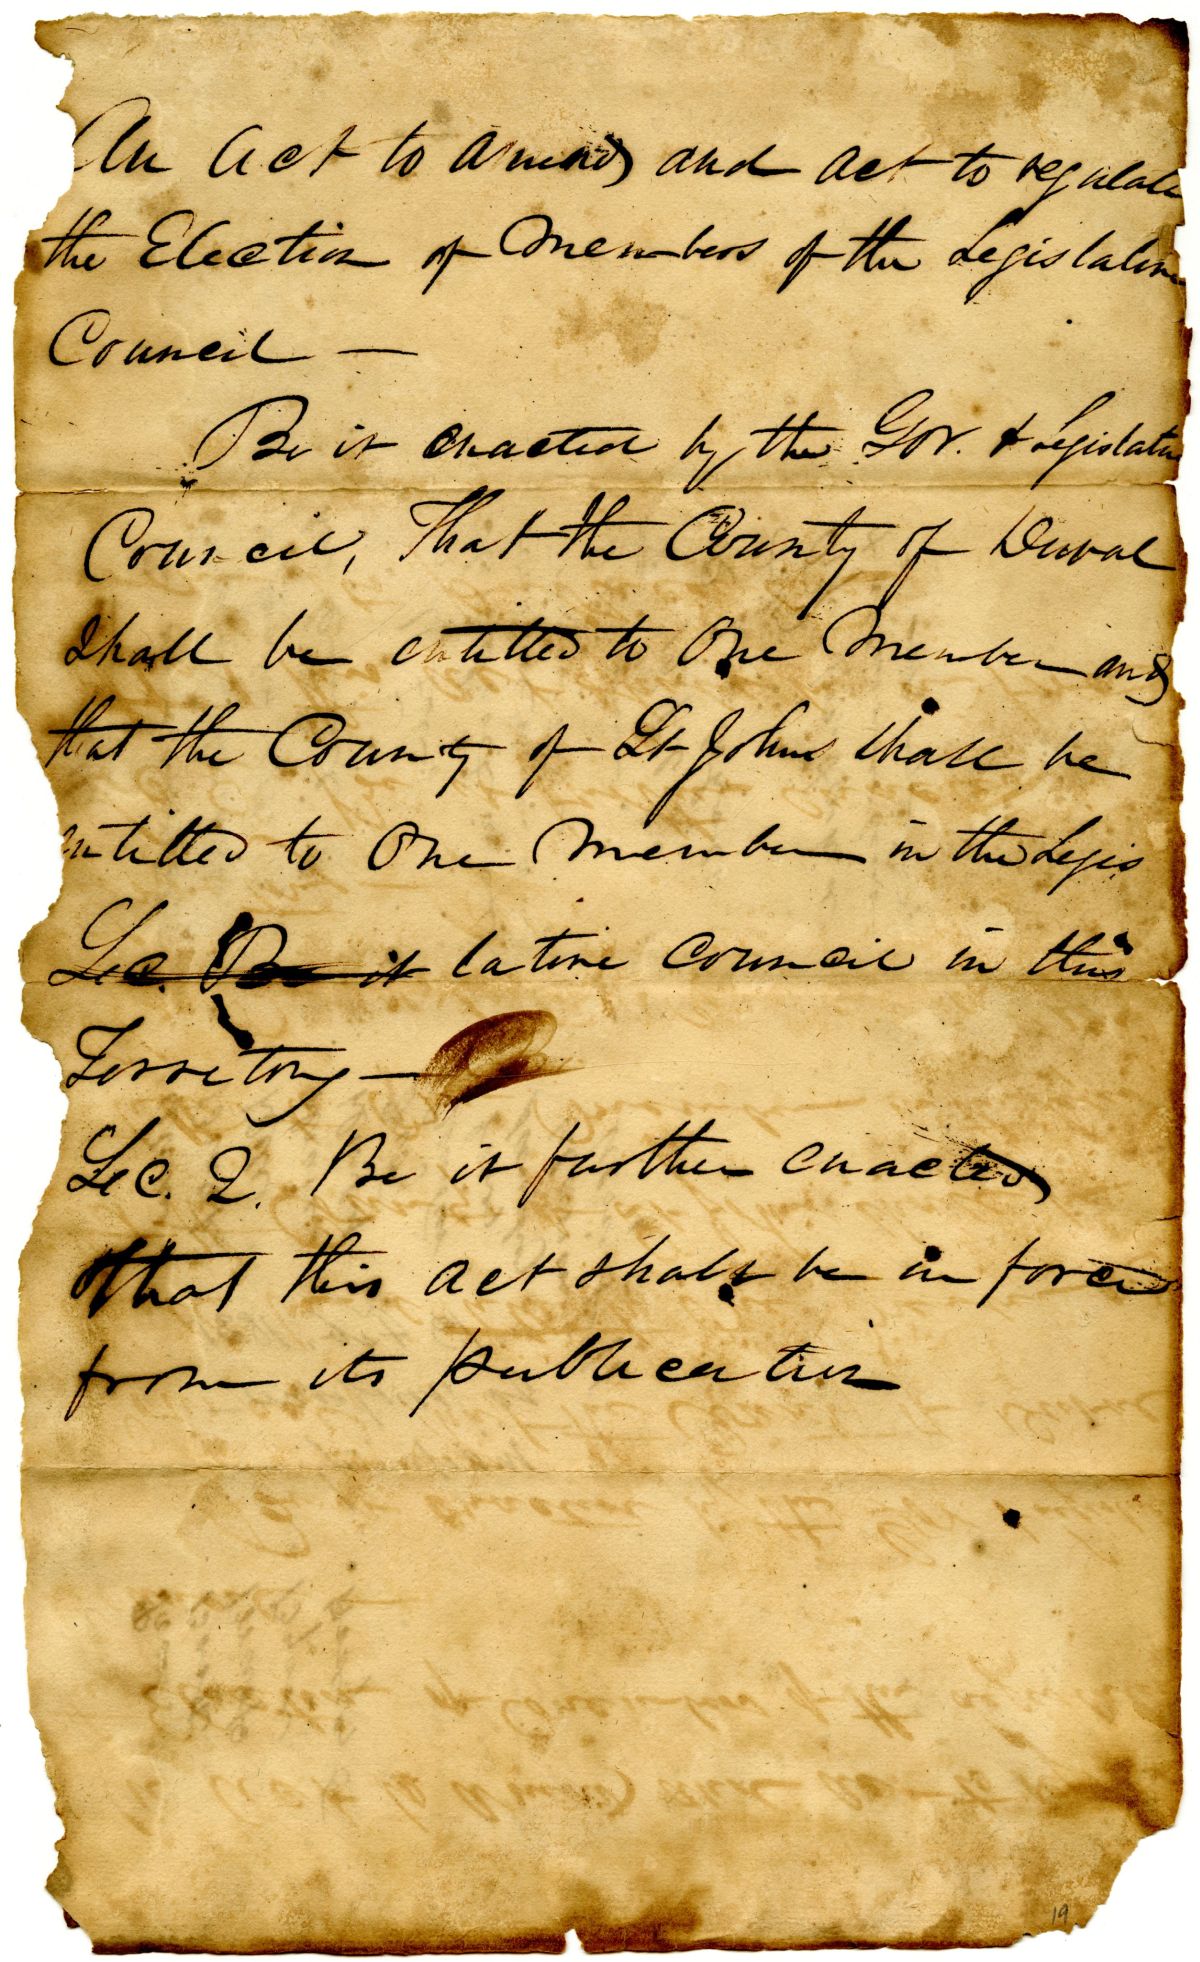 An Act to amend and act to regulate
the Election of Members of the Legislative
Council —
Be it enacted by the Gov. & Legislative
Council, That the County of Duval
Shall be entitled to One Member and
that the County of St Johns shall be
entitled to One Member in the Legis
Sec. Be it lative Council in this
Territory —
Sec. 2. Be it further enacted
that this act shall be in force
from its publication
19